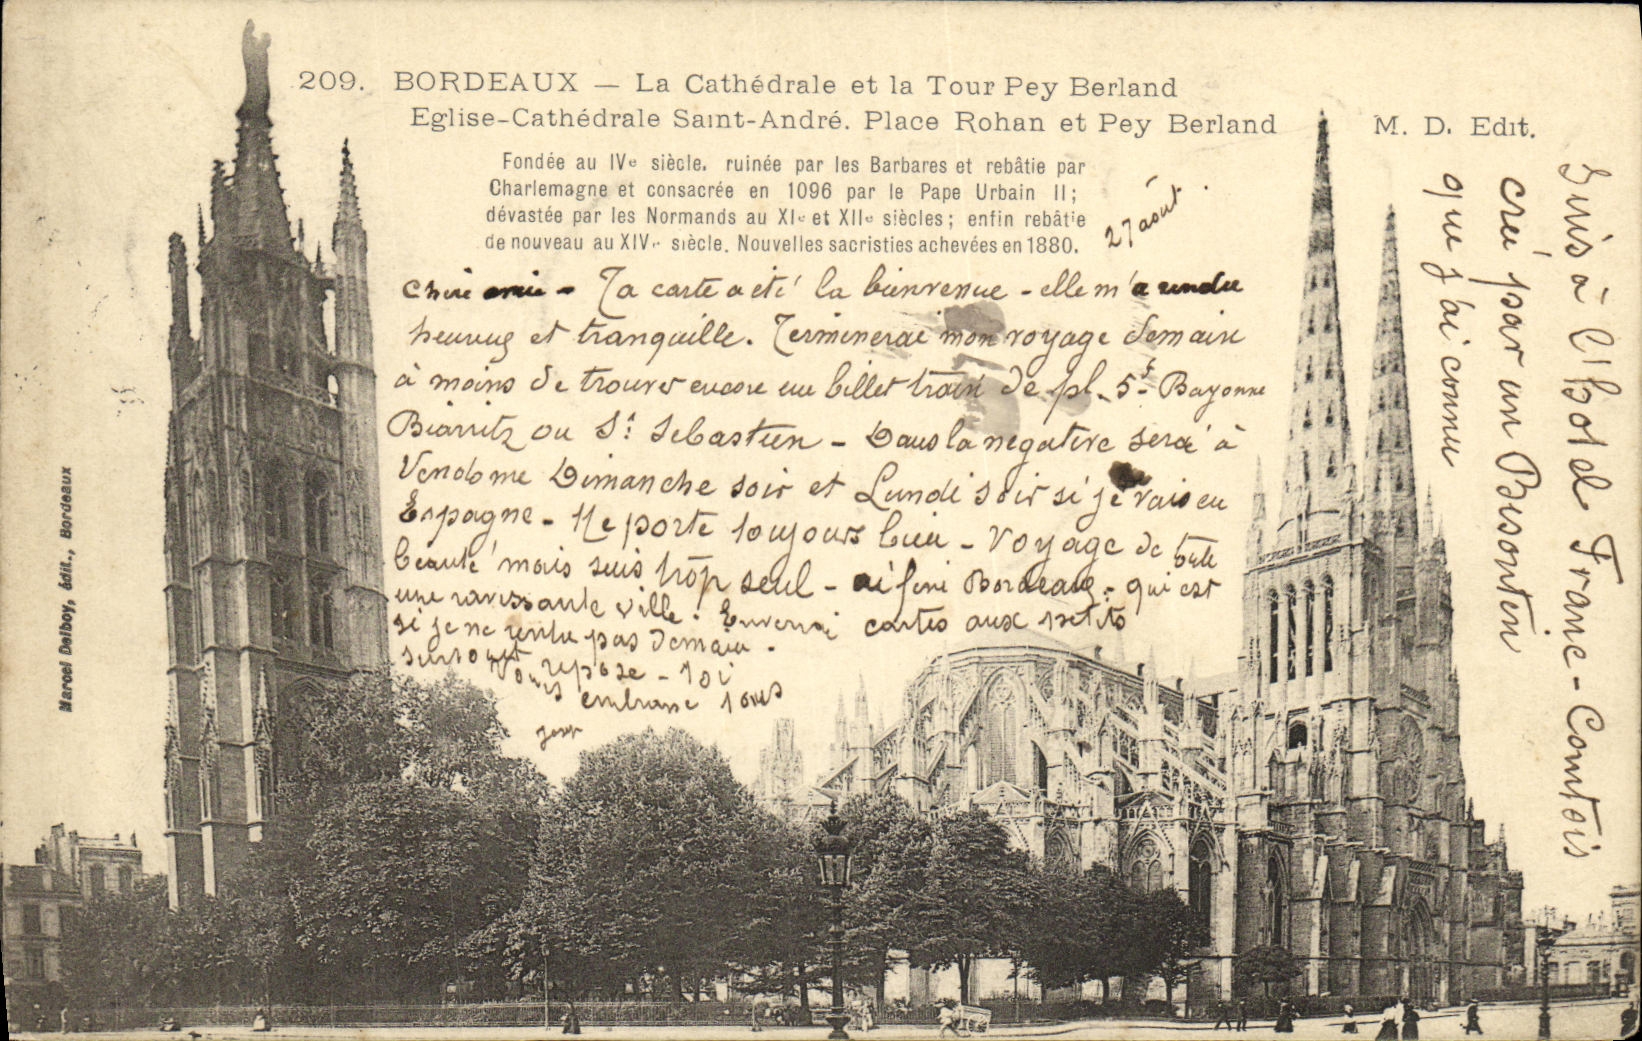 209. BORDEAUX — La Cathédrale et la Tour Pey Berland
Eglise-Cathédrale Saint-André. Place Rohan et Pey Berland
M. D. Edit.
Fondée au IVe siècle, ruinée par les Barbares et rebâtie par
Charlemagne et consacrée en 1096 par le Pape Urbain II;
dévastée par les Normands au XIe et XIIe siècles; enfin rebâtie
de nouveau au XIVe siècle. Nouvelles sacristies achevées en 1880.
27 août
Chère amie - Ta carte a été la bienvenue - elle m'a rendu
heureux et tranquille. Terminerai mon voyage demain
à moins de trouver encore un billet train de pl. 5f Bayonne
Biarritz ou St Sebastien - Dans la négative serai à
Vendome Dimanche soir et Lundi soir si je vais en
Espagne - Me porte toujours bien - Voyage de toute
beauté mais suis trop seul - ai fini Bordeaux - qui est
une ravissante ville. Enverrai cartes aux petits
si je ne rentre pas demain.
surtout repose-toi
Vous embrasse tous
Suis à l'hotel France-Comtois
créé par un Bisontin
que j'ai connu
Marcel Delboy, édit., Bordeaux